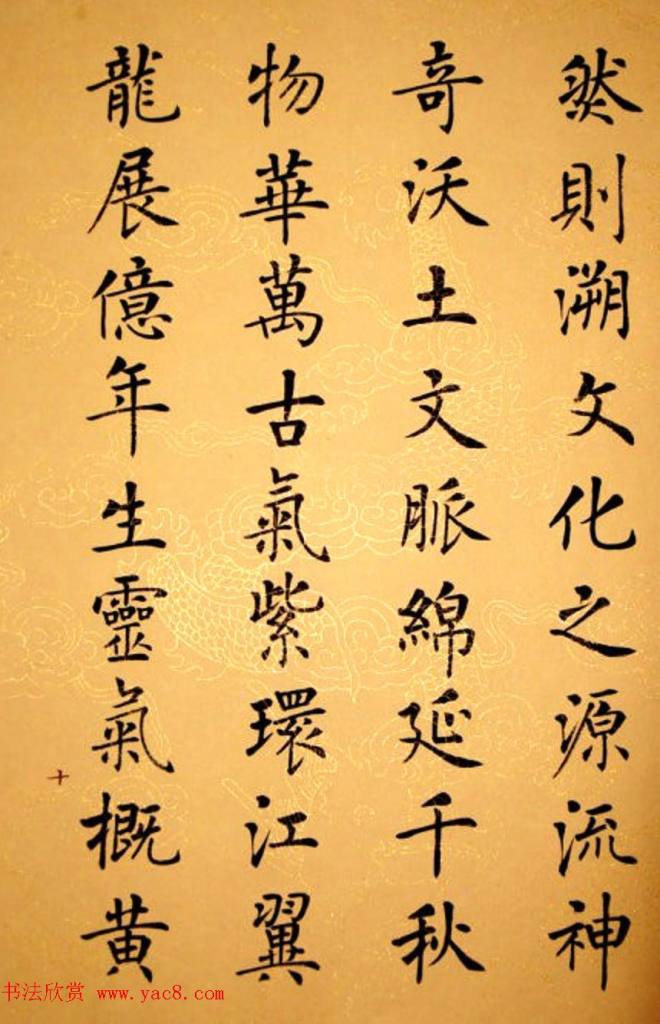 然則溯文化之源流神
奇沃土文脈綿延千秋
物華萬古氣紫環江翼
龍展億年生靈氣概黄
十
书法欣赏 www.yac8.com